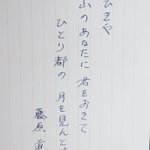 ひさや
山のあなたに 君をおきて
ひとり都の 月を見んと
藤原